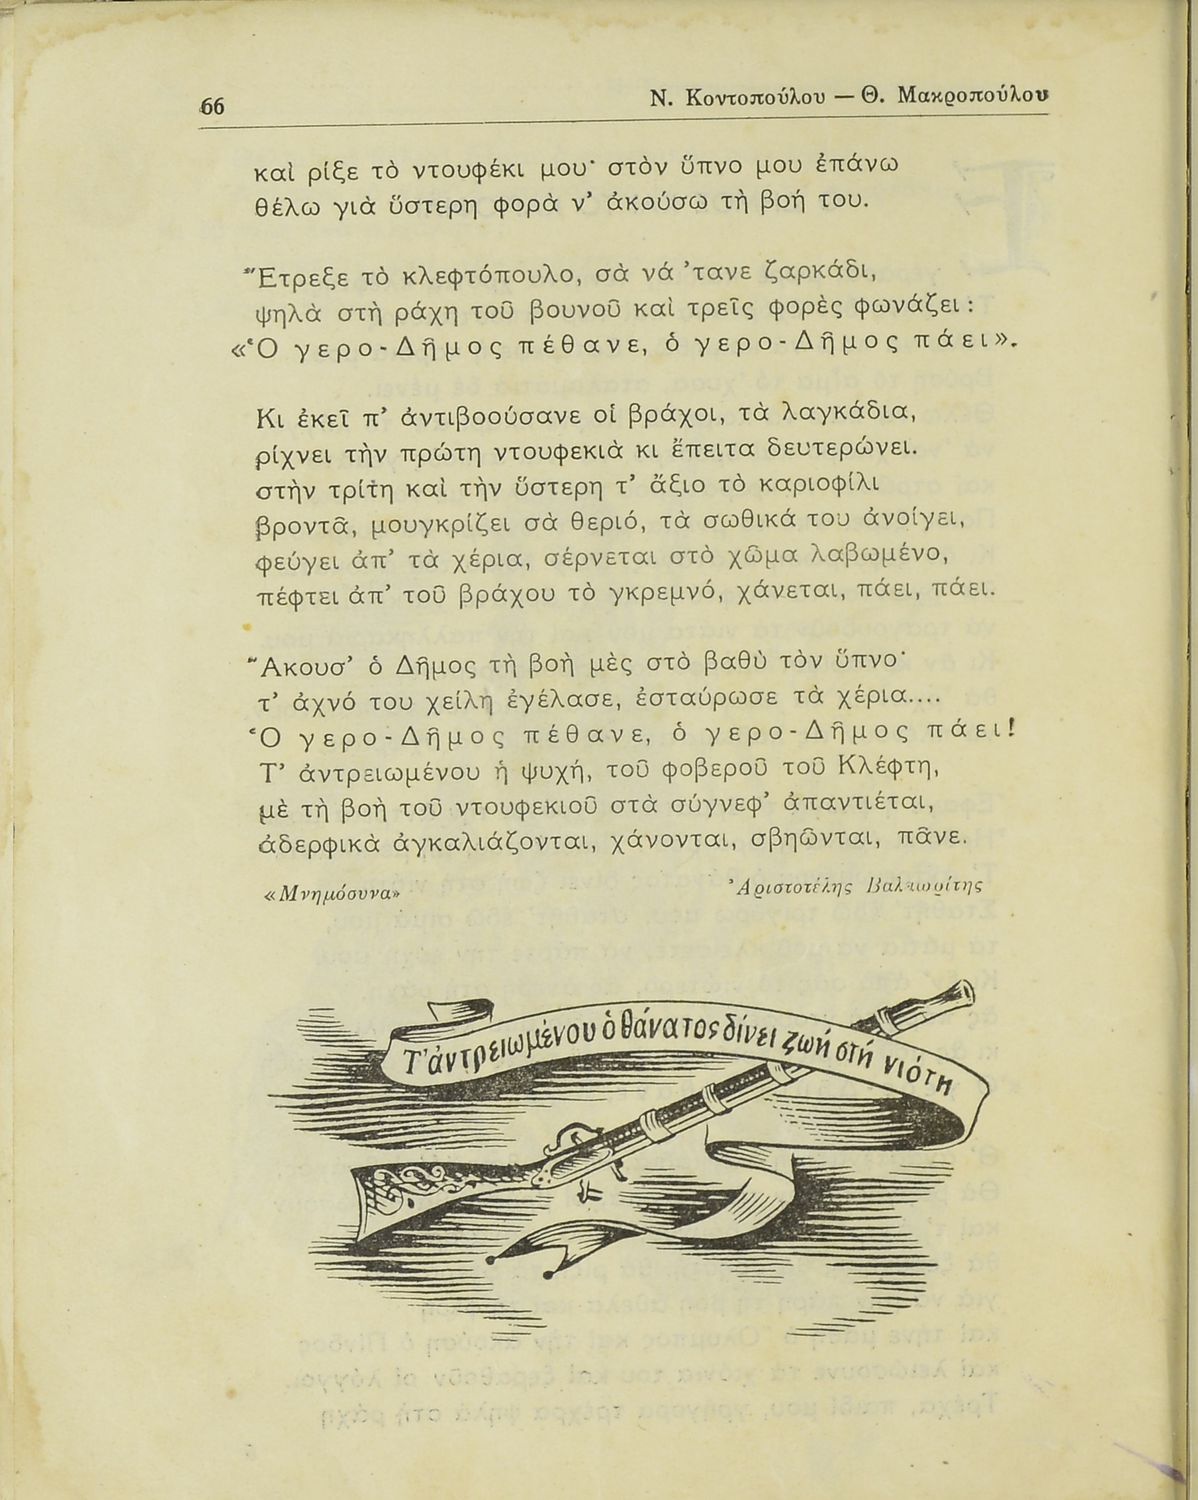 66
Ν. Κοντοπούλου — Θ. Μακροπούλου
καὶ ρίξε τὸ ντουφέκι μου· στὸν ὕπνο μου ἐπάνω
θέλω γιὰ ὕστερη φορὰ ν’ ἀκούσω τὴ βοή του.
Ἔτρεξε τὸ κλεφτόπουλο, σὰ νά ’τανε ζαρκάδι,
ψηλὰ στὴ ράχη τοῦ βουνοῦ καὶ τρεῖς φορὲς φωνάζει :
«Ὁ γερο-Δῆμος πέθανε, ὁ γερο-Δῆμος πάει».
Κι ἐκεῖ π’ ἀντιβοούσανε οἱ βράχοι, τὰ λαγκάδια,
ρίχνει τὴν πρώτη ντουφεκιὰ κι ἔπειτα δευτερώνει.
στὴν τρίτη καὶ τὴν ὕστερη τ’ ἄξιο τὸ καριοφίλι
βροντᾶ, μουγκρίζει σὰ θεριό, τὰ σωθικά του ἀνοίγει,
φεύγει ἀπ’ τὰ χέρια, σέρνεται στὸ χῶμα λαβωμένο,
πέφτει ἀπ’ τοῦ βράχου τὸ γκρεμνό, χάνεται, πάει, πάει.
Ἄκουσ’ ὁ Δῆμος τὴ βοὴ μὲς στὸ βαθὺ τὸν ὕπνο·
τ’ ἀχνό του χείλη ἐγέλασε, ἐσταύρωσε τὰ χέρια....
Ὁ γερο-Δῆμος πέθανε, ὁ γερο-Δῆμος πάει!
Τ’ ἀντρειωμένου ἡ ψυχή, τοῦ φοβεροῦ τοῦ Κλέφτη,
μὲ τὴ βοὴ τοῦ ντουφεκιοῦ στὰ σύγνεφ’ ἀπαντιέται,
ἀδερφικὰ ἀγκαλιάζονται, χάνονται, σβηῶνται, πᾶνε.
«Μνημόσυνα»
Ἀριστοτέλης Βαλαωρίτης
Τ’ ἀντρειωμένου ὁ θάνατος δίνει ζωή στή νιότη